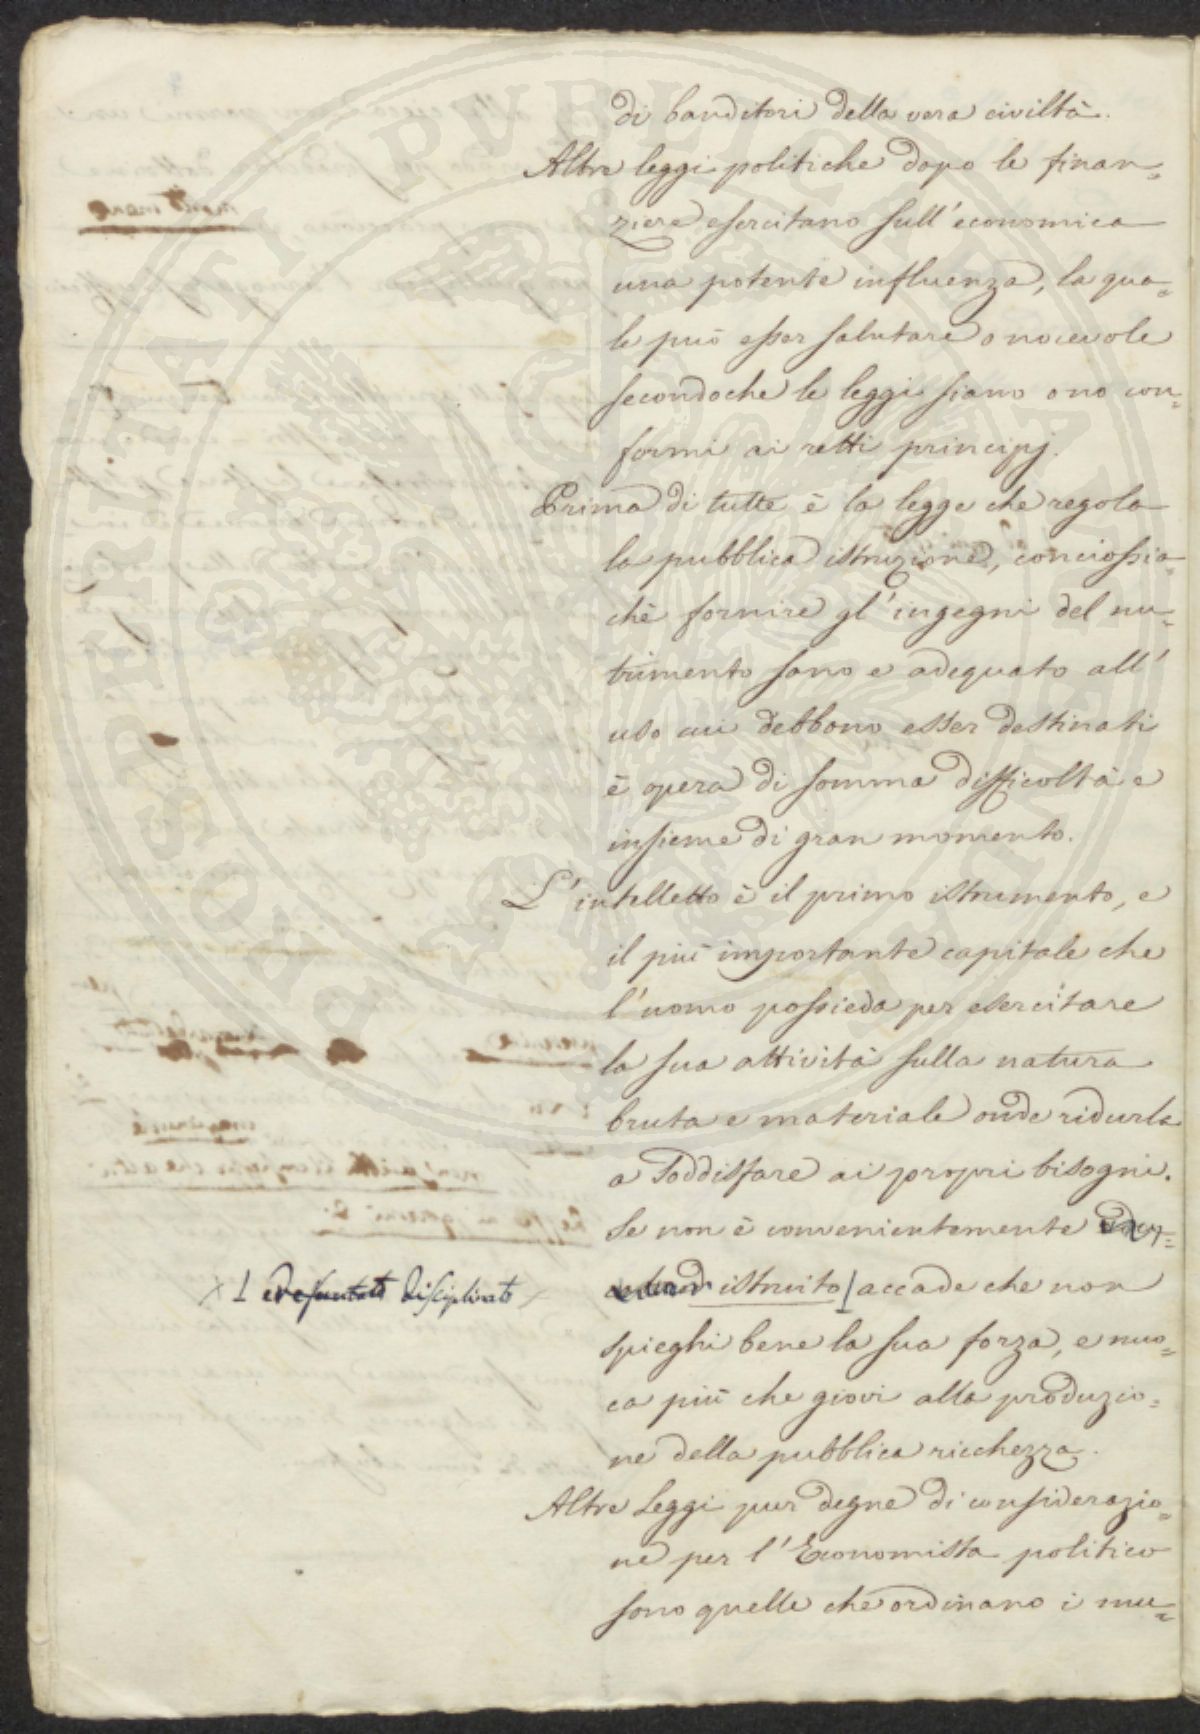 di banditori della vera civiltà.
Altre leggi politiche dopo le finan=
ziere esercitano sull'economica
una potente influenza, la qua=
le può esser salutare o nocevole
secondoche le leggi siano o no con=
formi ai retti principj.
Prima di tutte è la legge che regola
la pubblica istruzione, conciossia=
chè fornire gl'ingegni del nu=
trimento sano e adequato all'
uso cui debbono esser destinati
è opera di somma difficoltà e
insieme di gran momento.
L'intelletto è il primo istrumento, e
il più importante capitale che
l'uomo possieda per esercitare
la sua attività sulla natura
bruta e materiale onde ridurla
a soddisfare ai propri bisogni.
Se non è convenientemente
istruito accade che non
× disciplinato ×
spieghi bene la sua forza, e nuo=
ca più che giovi alla produzio=
ne della pubblica ricchezza.
Altre Leggi pur degne di considerazio=
ne per l'Economista politico
sono quelle che ordinano i mu=
PROSPERITATI PVBLICAE AVGENDAE